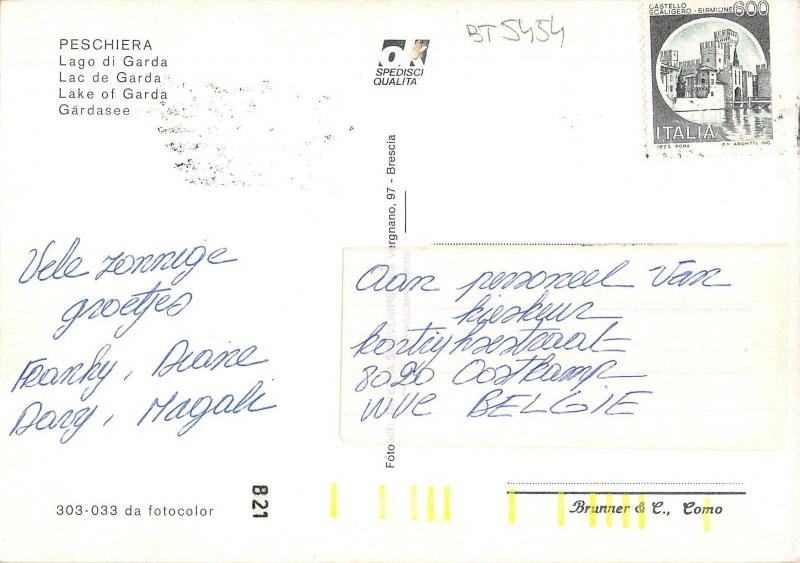 PESCHIERA
Lago di Garda
Lac de Garda
Lake of Garda
Gardasee
OK
SPEDISCI
QUALITA
BT 5454
CASTELLO
SCALIGERO - SIRMIONE 600
ITALIA
1975 ROMA
Vele zonnige
groetjes
Franky, Diane
Davy, Magali
Aan personeel van
kieskeur
kortrijksestraat
8020 Oostkamp
WVL BELGIE
ergnano, 97 - Brescia
Foto
303-033 da fotocolor
B21
Brunner & C., Como